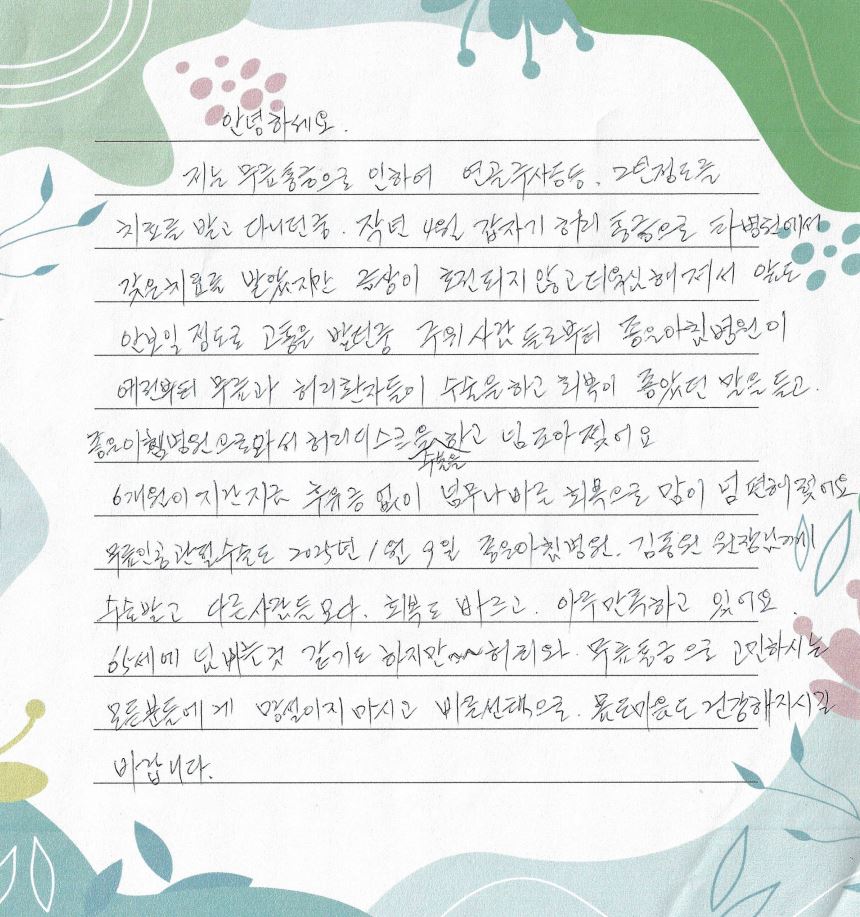 안녕하세요.
저는 무릎통증으로 인하여 연골주사등등. 2년정도를
치료를 받고 다니던중. 작년 4월 갑자기 허리 통증으로 타병원에서
갖은치료를 받았지만 증상이 호전되지 않고 더욱심해져서
정도로 고통을 받던중 주위 사람들로부터 좋은아침병원이
예전부터 무릎과 허리환자들이 수술을하고 회복이 좋았던 말을 듣고.
좋은아침병원으로와서 허리디스크 수술을 하고 넘 조아졌어요
6개월이 지간지금 후유증 없이 넘무나 바른 회복으로 맘이 넘 편해졌어요
무릎인공관절수술도 2025년 1월 9일 좋은아침병원. 김동원 원장님께
수술받고 다른사람들 보다. 회복도 바르고. 아주만족하고 있어요.
65세에 넘 빠른것 같기도 하지만 ~~ 허리와. 무릎통증으로 고민하시는
모든분들에게 망설이지 마시고 바른선택으로. 몸도마음도 건강해지시길
바랍니다.